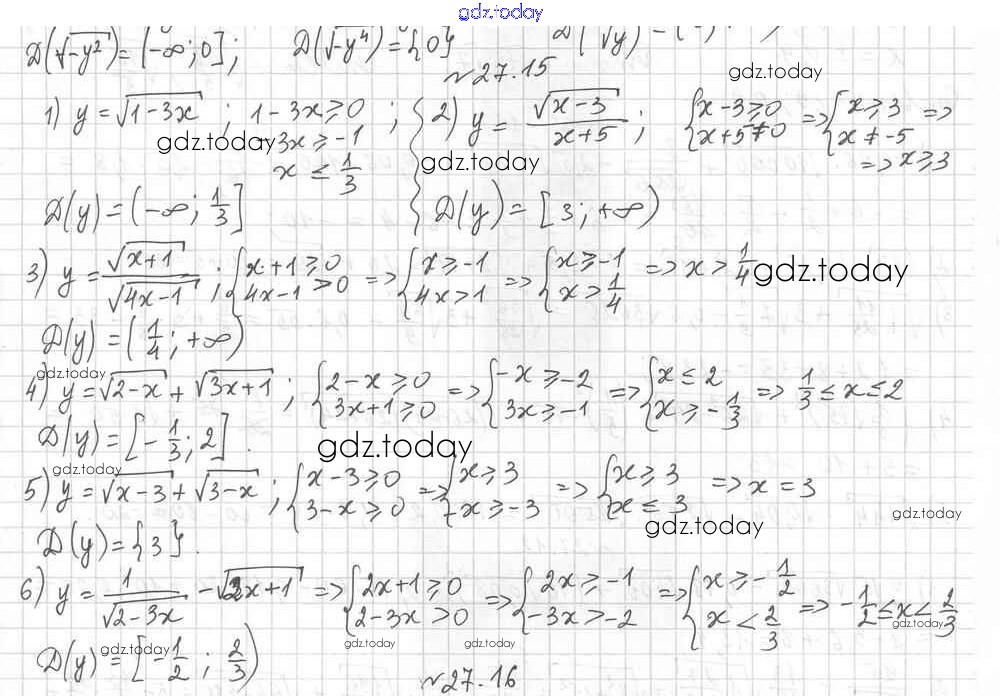 gdz.today
D(√-y²) = (-∞; 0]; D(√-y⁴) = {0}
№ 27.15
gdz.today
1) y = √1-3x ; 1-3x ≥ 0 ;
-3x ≥ -1
x ≤ 1/3
gdz.today
D(y) = (-∞; 1/3]
2) y = √x-3 / x+5 ; {x-3 ≥ 0 {x+5 ≠ 0 => {x ≥ 3 {x ≠ -5 =>
=> x ≥ 3
gdz.today
D(y) = [3; +∞)
3) y = √x+1 / √4x-1 ; {x+1 ≥ 0 {4x-1 > 0 => {x ≥ -1 {4x > 1 => {x ≥ -1 {x > 1/4 => x > 1/4
gdz.today
D(y) = (1/4; +∞)
gdz.today
4) y = √2-x + √3x+1 ; {2-x ≥ 0 {3x+1 ≥ 0 => {-x ≥ -2 {3x ≥ -1 => {x ≤ 2 {x ≥ -1/3 => 1/3 ≤ x ≤ 2
D(y) = [-1/3; 2].
gdz.today
gdz.today
5) y = √x-3 + √3-x ; {x-3 ≥ 0 {3-x ≥ 0 => {x ≥ 3 {-x ≥ -3 => {x ≥ 3 {x ≤ 3 => x = 3
gdz.today
gdz.today
D(y) = {3}.
6) y = 1 / √2-3x - √2x+1 => {2x+1 ≥ 0 {2-3x > 0 => {2x ≥ -1 {-3x > -2 => {x ≥ -1/2 {x < 2/3 => -1/2 ≤ x < 2/3
gdz.today
gdz.today
gdz.today
gdz.today
D(y) = [-1/2 ; 2/3)
№ 27.16